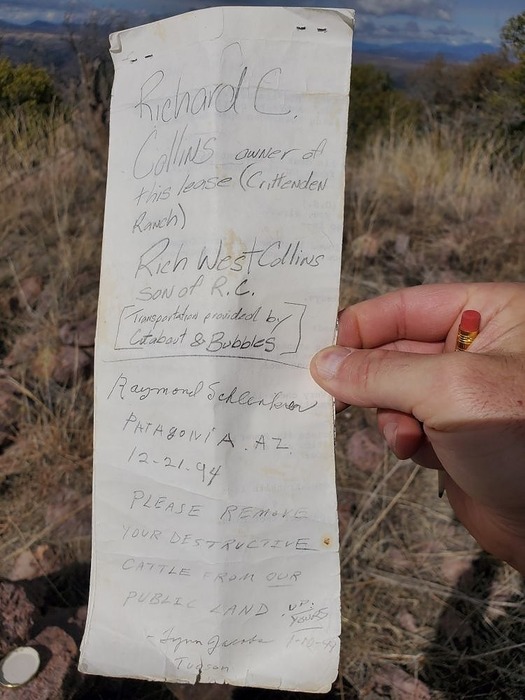 Richard C.
Collins owner of
this lease (Crittenden
Ranch)
Rich West Collins
son of R.C.
[Transportation provided by
Catabout & Bubbles]
Raymond
PATAGONIA. AZ.
12-21.94
PLEASE REMOVE
YOUR DESTRUCTIVE
CATTLE FROM OUR
PUBLIC LAND UP
YOURS
- Lynn Jacobs
Tucson